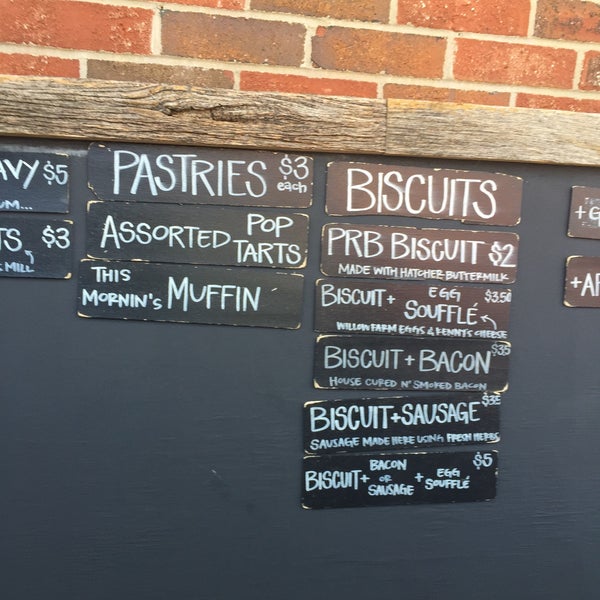 AVY $5
UM...
TS $3
MILL
PASTRIES $3 each
ASSORTED POP TARTS
THIS MORNIN'S MUFFIN
BISCUITS
PRB BISCUIT $2
MADE WITH HATCHER BUTTERMILK
BISCUIT + EGG SOUFFLÉ $3.50
WILLOW FARM EGGS & KENNY'S CHEESE
BISCUIT + BACON $3.5
HOUSE CURED N' SMOKED BACON
BISCUIT + SAUSAGE
SAUSAGE MADE HERE USING FRESH HERBS
BISCUIT + BACON OR SAUSAGE + EGG SOUFFLÉ $5
+G
+AP